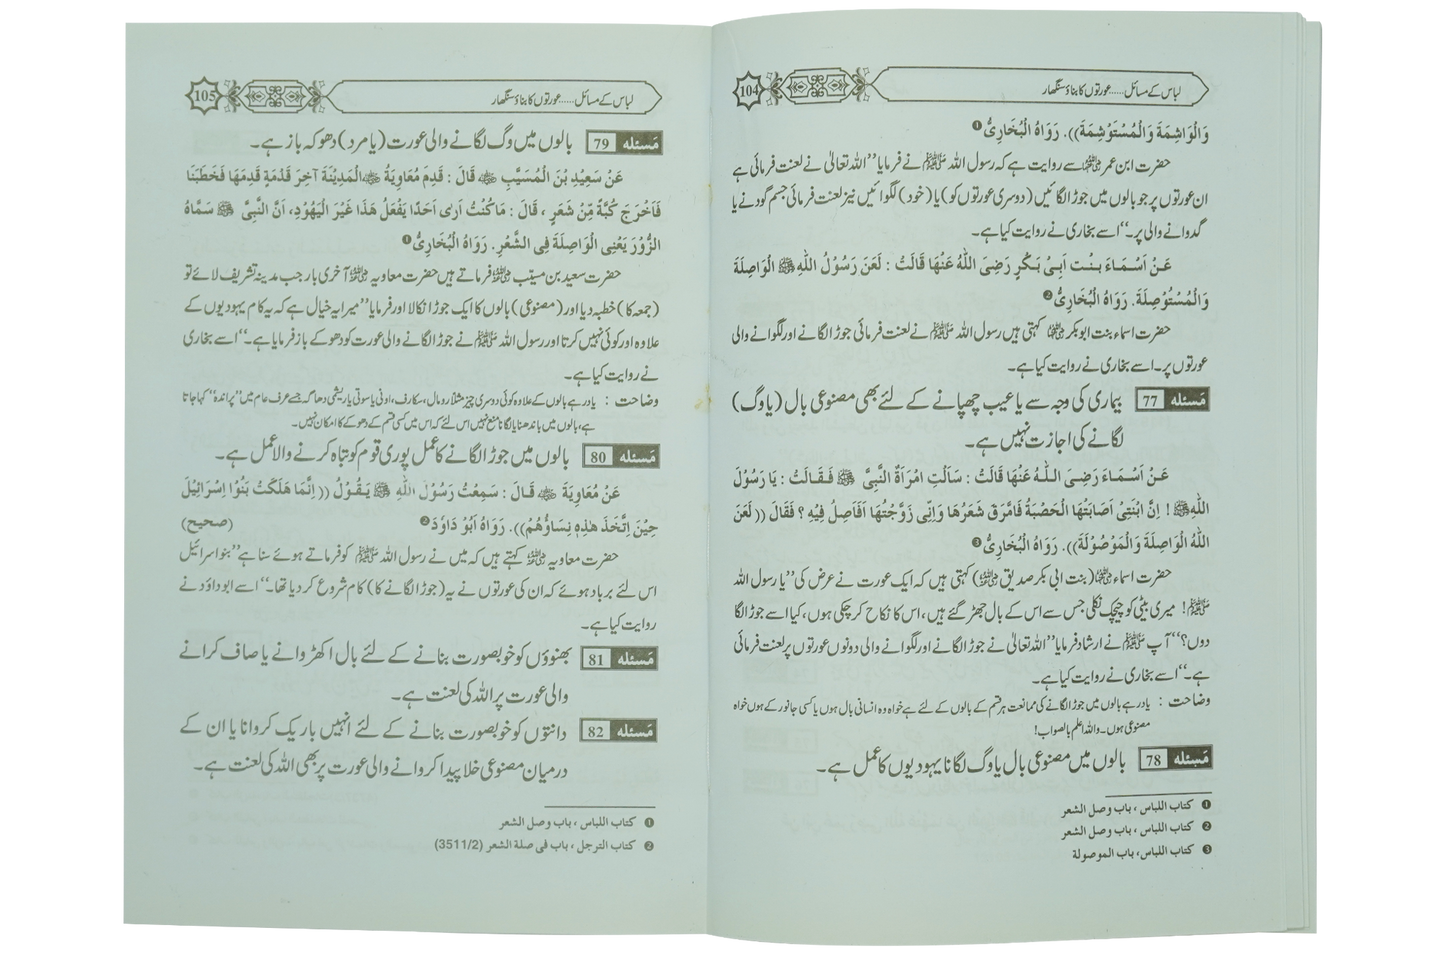 104
لباس کے مسائل.....عورتوں کا بناؤ سنگھار
وَالْوَاشِمَةَ وَالْمُسْتَوْشِمَةَ)). رَوَاهُ الْبُخَارِیُّ❶
حضرت ابن عمر ؓ سے روایت ہے کہ رسول اللہ ﷺ نے فرمایا ’’اللہ تعالیٰ نے لعنت فرمائی ہے
ان عورتوں پر جو بالوں میں جوڑ لگائیں (دوسری عورتوں کو) یا (خود) لگوائیں نیز لعنت فرمائی جسم گودنے یا
گدوانے والی پر۔‘‘ اسے بخاری نے روایت کیا ہے۔
عَنْ اَسْمَاءَ بِنْت اَبِیْ بَکْرٍ رَضِیَ اللّٰهُ عَنْهَا قَالَتْ : لَعَنَ رَسُوْلُ اللّٰهِ ﷺ الْوَاصِلَةَ
وَالْمُسْتَوْصِلَةَ. رَوَاهُ الْبُخَارِیُّ❷
حضرت اسماء بنت ابوبکر ؓ کہتی ہیں رسول اللہ ﷺ نے لعنت فرمائی جوڑ لگانے اور لگوانے والی
عورتوں پر۔ اسے بخاری نے روایت کیا ہے۔
مَسئلہ 77 بیماری کی وجہ سے یا عیب چھپانے کے لئے بھی مصنوعی بال (یا وگ)
لگانے کی اجازت نہیں ہے۔
عَنْ اَسْمَاءَ رَضِیَ اللّٰهُ عَنْهَا قَالَتْ : سَالَتِ امْرَاَةٌ النَّبِیَّ ﷺ فَقَالَتْ : یَا رَسُوْلَ
اللّٰهِ ﷺ ! اِنَّ ابْنَتِیْ اَصَابَتْهَا الْحَصْبَةُ فَامَّرَقَ شَعَرُهَا وَاِنِّی زَوَّجْتُهَا اَفَاَصِلُ فِیْهِ ؟ فَقَالَ (( لَعَنَ
اللّٰهُ الْوَاصِلَةَ وَالْمَوْصُوْلَةَ)). رَوَاهُ الْبُخَارِیُّ❸
حضرت اسماء ؓ (بنت ابی بکر صدیق ؓ) کہتی ہیں کہ ایک عورت نے عرض کی ’’یا رسول اللہ
ﷺ! میری بیٹی کو چیچک نکلی جس سے اس کے بال جھڑ گئے ہیں، اس کا نکاح کر چکی ہوں، کیا اسے جوڑ لگا
دوں؟‘‘ آپ ﷺ نے ارشاد فرمایا ’’اللہ تعالیٰ نے جوڑ لگانے اور لگوانے والی دونوں عورتوں پر لعنت فرمائی
ہے۔‘‘ اسے بخاری نے روایت کیا ہے۔
وضاحت : یاد رہے بالوں میں جوڑ لگانے کی ممانعت ہر قسم کے بالوں کے لئے ہے خواہ وہ انسانی بال ہوں یا کسی جانور کے ہوں خواہ
مصنوعی ہوں۔ واللہ اعلم بالصواب!
مَسئلہ 78 بالوں میں مصنوعی بال یا وگ لگانا یہودیوں کا عمل ہے۔
❶ کتاب اللباس ، باب وصل الشعر
❷ کتاب اللباس ، باب وصل الشعر
❸ کتاب اللباس، باب الموصولة
105
لباس کے مسائل.....عورتوں کا بناؤ سنگھار
مَسئلہ 79 بالوں میں وگ لگانے والی عورت (یا مرد) دھوکہ باز ہے۔
عَنْ سَعِیْدِ بْنَ الْمُسَیَّبِ ؓ قَالَ : قَدِمَ مُعَاوِیَةُ ؓ الْمَدِیْنَةَ آخِرَ قَدْمَةٍ قَدِمَهَا فَخَطَبَنَا
فَاَخْرَجَ کُبَّةً مِّنْ شَعَرٍ ، قَالَ : مَا کُنْتُ اَرٰی اَحَدًا یَفْعَلُ هٰذَا غَیْرَ الْیَهُوْدِ، اَنَّ النَّبِیَّ ﷺ سَمَّاهُ
الزُّوْرَ یَعْنِی الْوَاصِلَةَ فِی الشَّعْرِ. رَوَاهُ الْبُخَارِیُّ❶
حضرت سعید بن مسیتب ؓ فرماتے ہیں حضرت معاویہ ؓ آخری بار جب مدینہ تشریف لائے تو
(جمعہ کا) خطبہ دیا اور (مصنوعی) بالوں کا ایک جوڑا نکالا اور فرمایا ’’میرا یہ خیال ہے کہ یہ کام یہودیوں کے
علاوہ اور کوئی نہیں کرتا اور رسول اللہ ﷺ نے جوڑ لگانے والی عورت کو دھوکے باز فرمایا ہے۔‘‘ اسے بخاری
نے روایت کیا ہے۔
وضاحت : یاد رہے بالوں کے علاوہ کوئی دوسری چیز مثلاً رومال، سکارف، اونی یا سوتی یا ریشمی دھاگہ جسے عرف عام میں ’’پراندہ‘‘ کہا جاتا
ہے، بالوں میں باندھنا یا لگانا منع نہیں اس لئے کہ اس میں کسی قسم کے دھوکے کا امکان نہیں۔
مَسئلہ 80 بالوں میں جوڑ لگانے کا عمل پوری قوم کو تباہ کرنے والا عمل ہے۔
عَنْ مُعَاوِیَةَ ؓ قَالَ : سَمِعْتُ رَسُوْلَ اللّٰهِ ﷺ یَقُوْلُ (( اِنَّمَا هَلَکَتْ بَنُوْا اِسْرَائِیْلَ
حِیْنَ اِتَّخَذَ هٰذِهِ نِسَاؤُهُمْ)). رَوَاهُ اَبُوْ دَاوُدَ❷ (صحیح)
حضرت معاویہ ؓ کہتے ہیں کہ میں نے رسول اللہ ﷺ کو فرماتے ہوئے سنا ہے ’’بنو اسرائیل
اس لئے برباد ہوئے کہ ان کی عورتوں نے یہ (جوڑ لگانے کا) کام شروع کر دیا تھا۔‘‘ اسے ابوداؤد نے
روایت کیا ہے۔
مَسئلہ 81 بھنوؤں کو خوبصورت بنانے کے لئے بال اکھڑوانے یا صاف کرانے
والی عورت پر اللہ کی لعنت ہے۔
مَسئلہ 82 دانتوں کو خوبصورت بنانے کے لئے انہیں باریک کروانا یا ان کے
درمیان مصنوعی خلا پیدا کروانے والی عورت پر بھی اللہ کی لعنت ہے۔
❶ کتاب اللباس ، باب وصل الشعر
❷ کتاب الترجل ، باب فی صلة الشعر (3511/2)